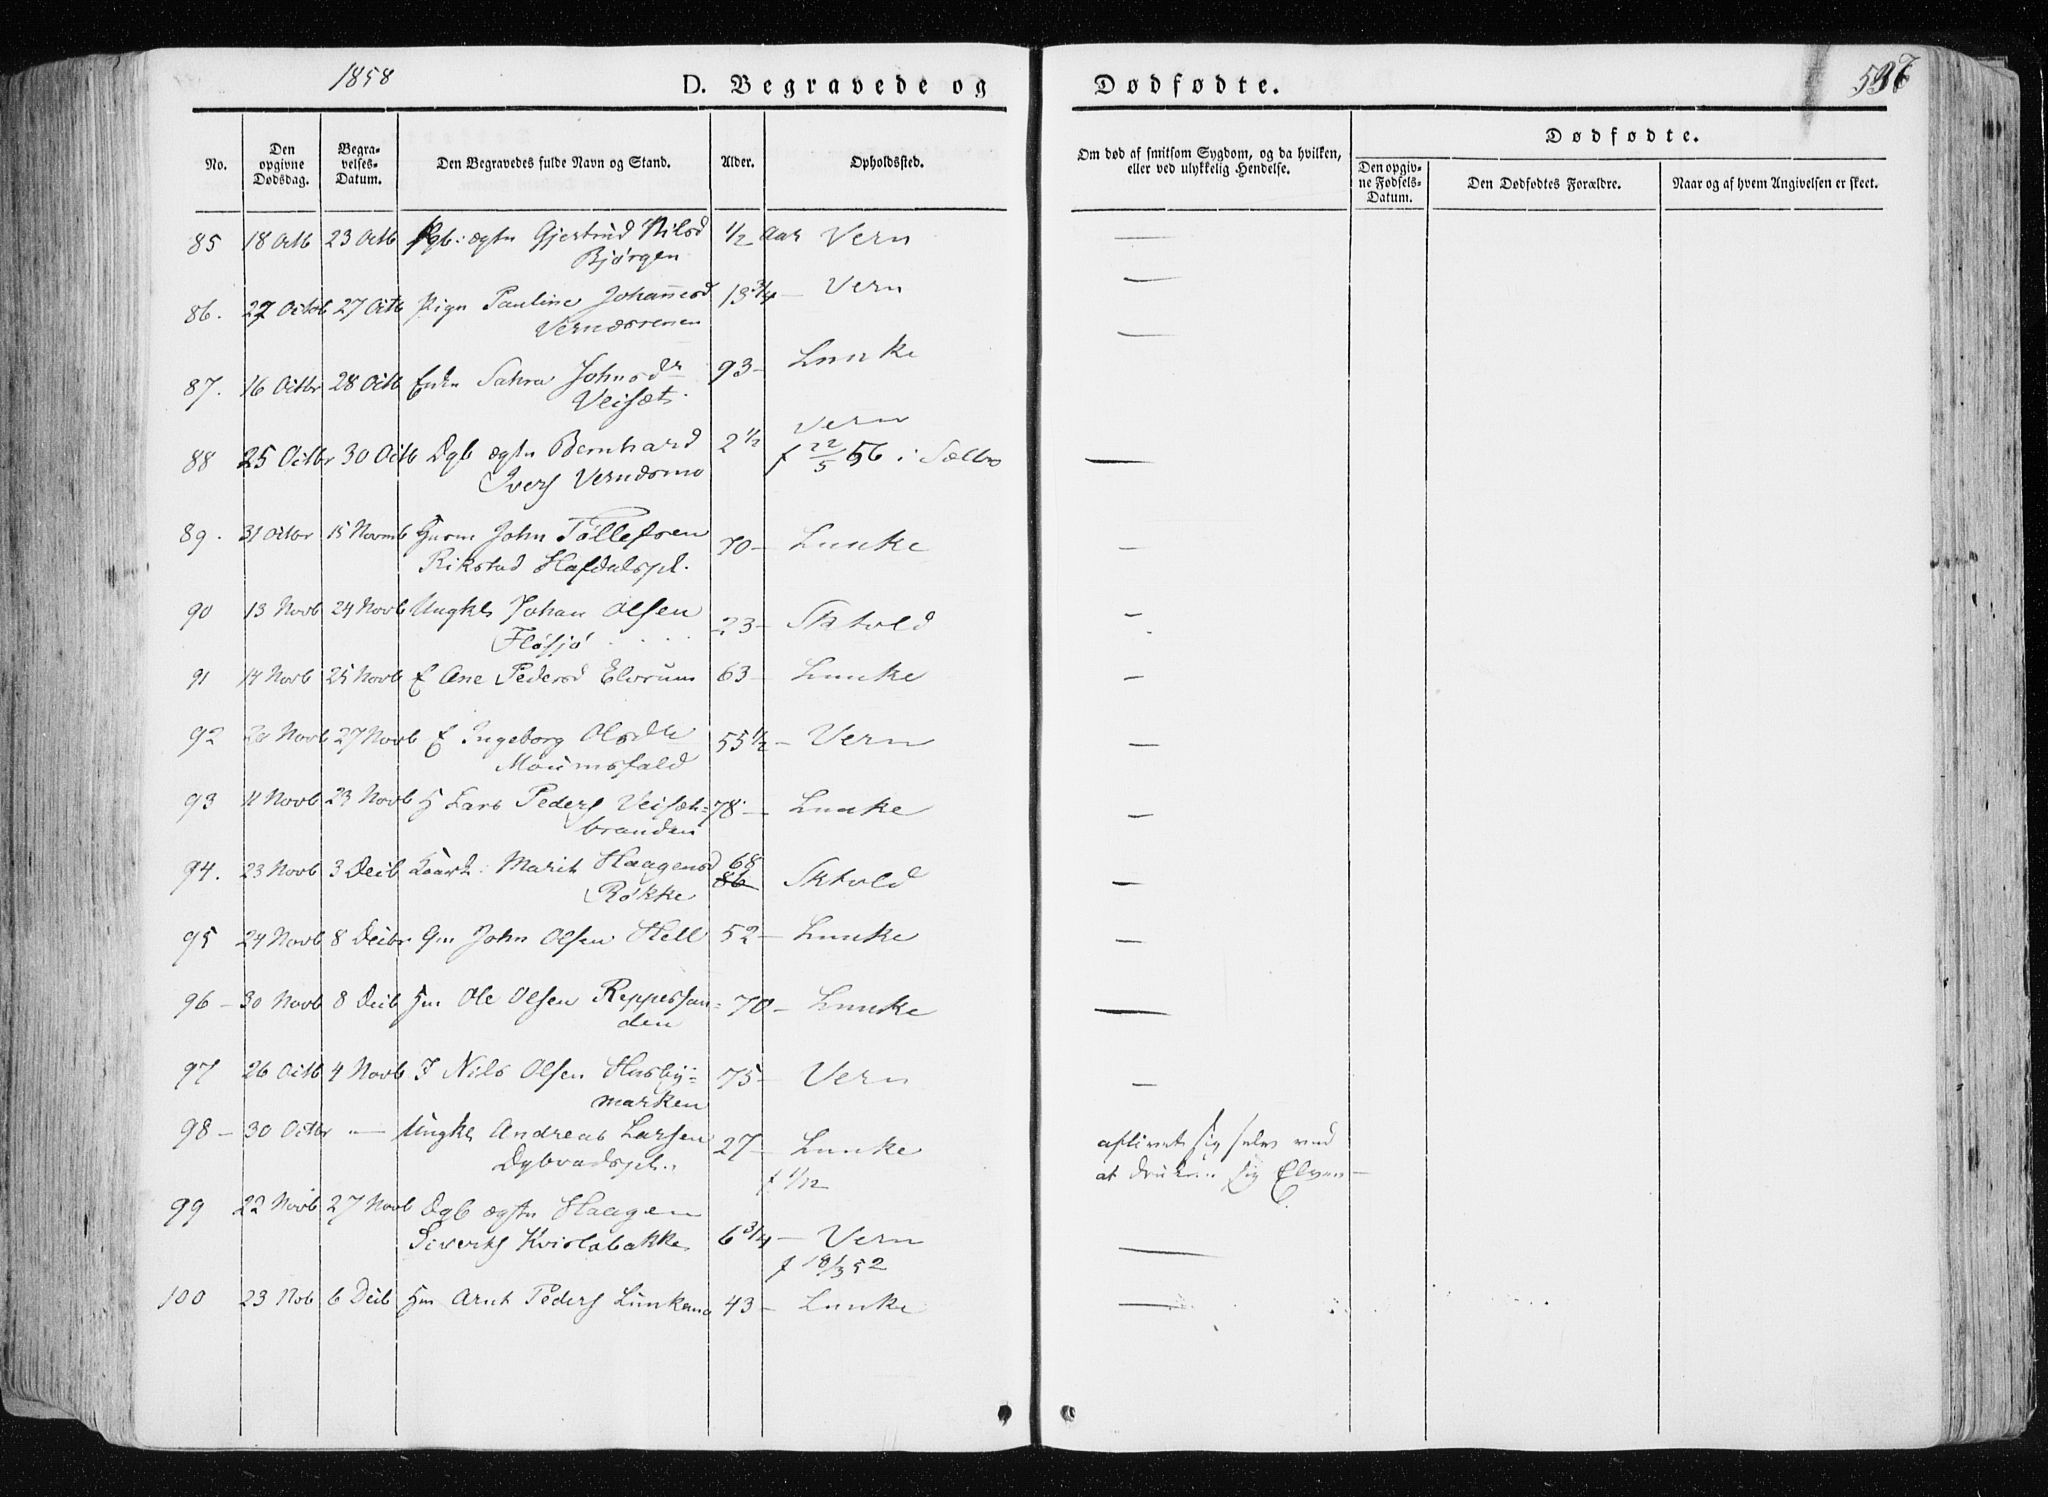 1858 D. Begravede og Dødfødte. 537
No. Den opgivne Dødsdag. Begravelses-Datum. Den Begravedes fulde Navn og Stand. Alder. Opholdssted. Om død af smitsom Sygdom, og da hvilken, eller ved ulykkelig Hendelse. Dødfødte.
Den opgivne Fødsels-Datum. Den Dødfødtes Forældre. Naar og af hvem Angivelsen er skeet.
85 18 Octb 23 Octb Pgb: ægte Gjertrud Nilsd ½ Aar Vern —
Bjørgen
86. 22 Octob 27 Octb Pign Pauline Johannesd 13¾ — Vern —
Vernesrenen
87. 16 Octbr 28 Octb Enke Sahra Johnsdr 93 — Lunke —
Veisæt
88 25 Octbr 30 Octb Dgb ægte Bernhard 2½ Vern —
Ivers Vernesmo f 22/5 56 i Sælbo
89. 31 Octbr 15 Novmb Husm John Tøllefsen 70 — Lunke —
Rikstad Hafdalspl.
90 13 Novb 24 Novb Ungkl Johan Olsen 23 — Sktvold —
Fløsjø
91 14 Novb 25 Novb E Ane Pedersd Elvrum 63 — Lunke —
92 20 Novb 27 Novb E Ingeborg Olsdtr 55½ — Vern —
Moumsfald
93 11 Novb 23 Novb H Lars Peders Veisæt- 78 — Lunke —
branden
94. 23 Novb 3 Decb Kaark: Marit Haagensd 68 86 Sktvold —
Røkke
95 24 Novb 8 Decbr Gm John Olsen Hell 52 — Lunke —
96 — 30 Novb 8 Decb Hm Ole Olsen Reppessan- 70 — Lunke —
den
97 26 Octb 4 Novb I Nils Olsen Husby- 75 — Vern —
marken
98 — 30 Octbr — Ungkl Andreas Larsen 27 — Lunke aflivet sig selv ved
Dybvadspl. f 1/12 at drukne sig Elven —
99 22 Novb 27 Novb Dgb ægte Haagen
Siverts Kvislabakke 6¾ — Vern —
f 19/3 52
100 23 Nob 6 Decb Hm Arnt Peders Lunkemo 43 — Lunke —